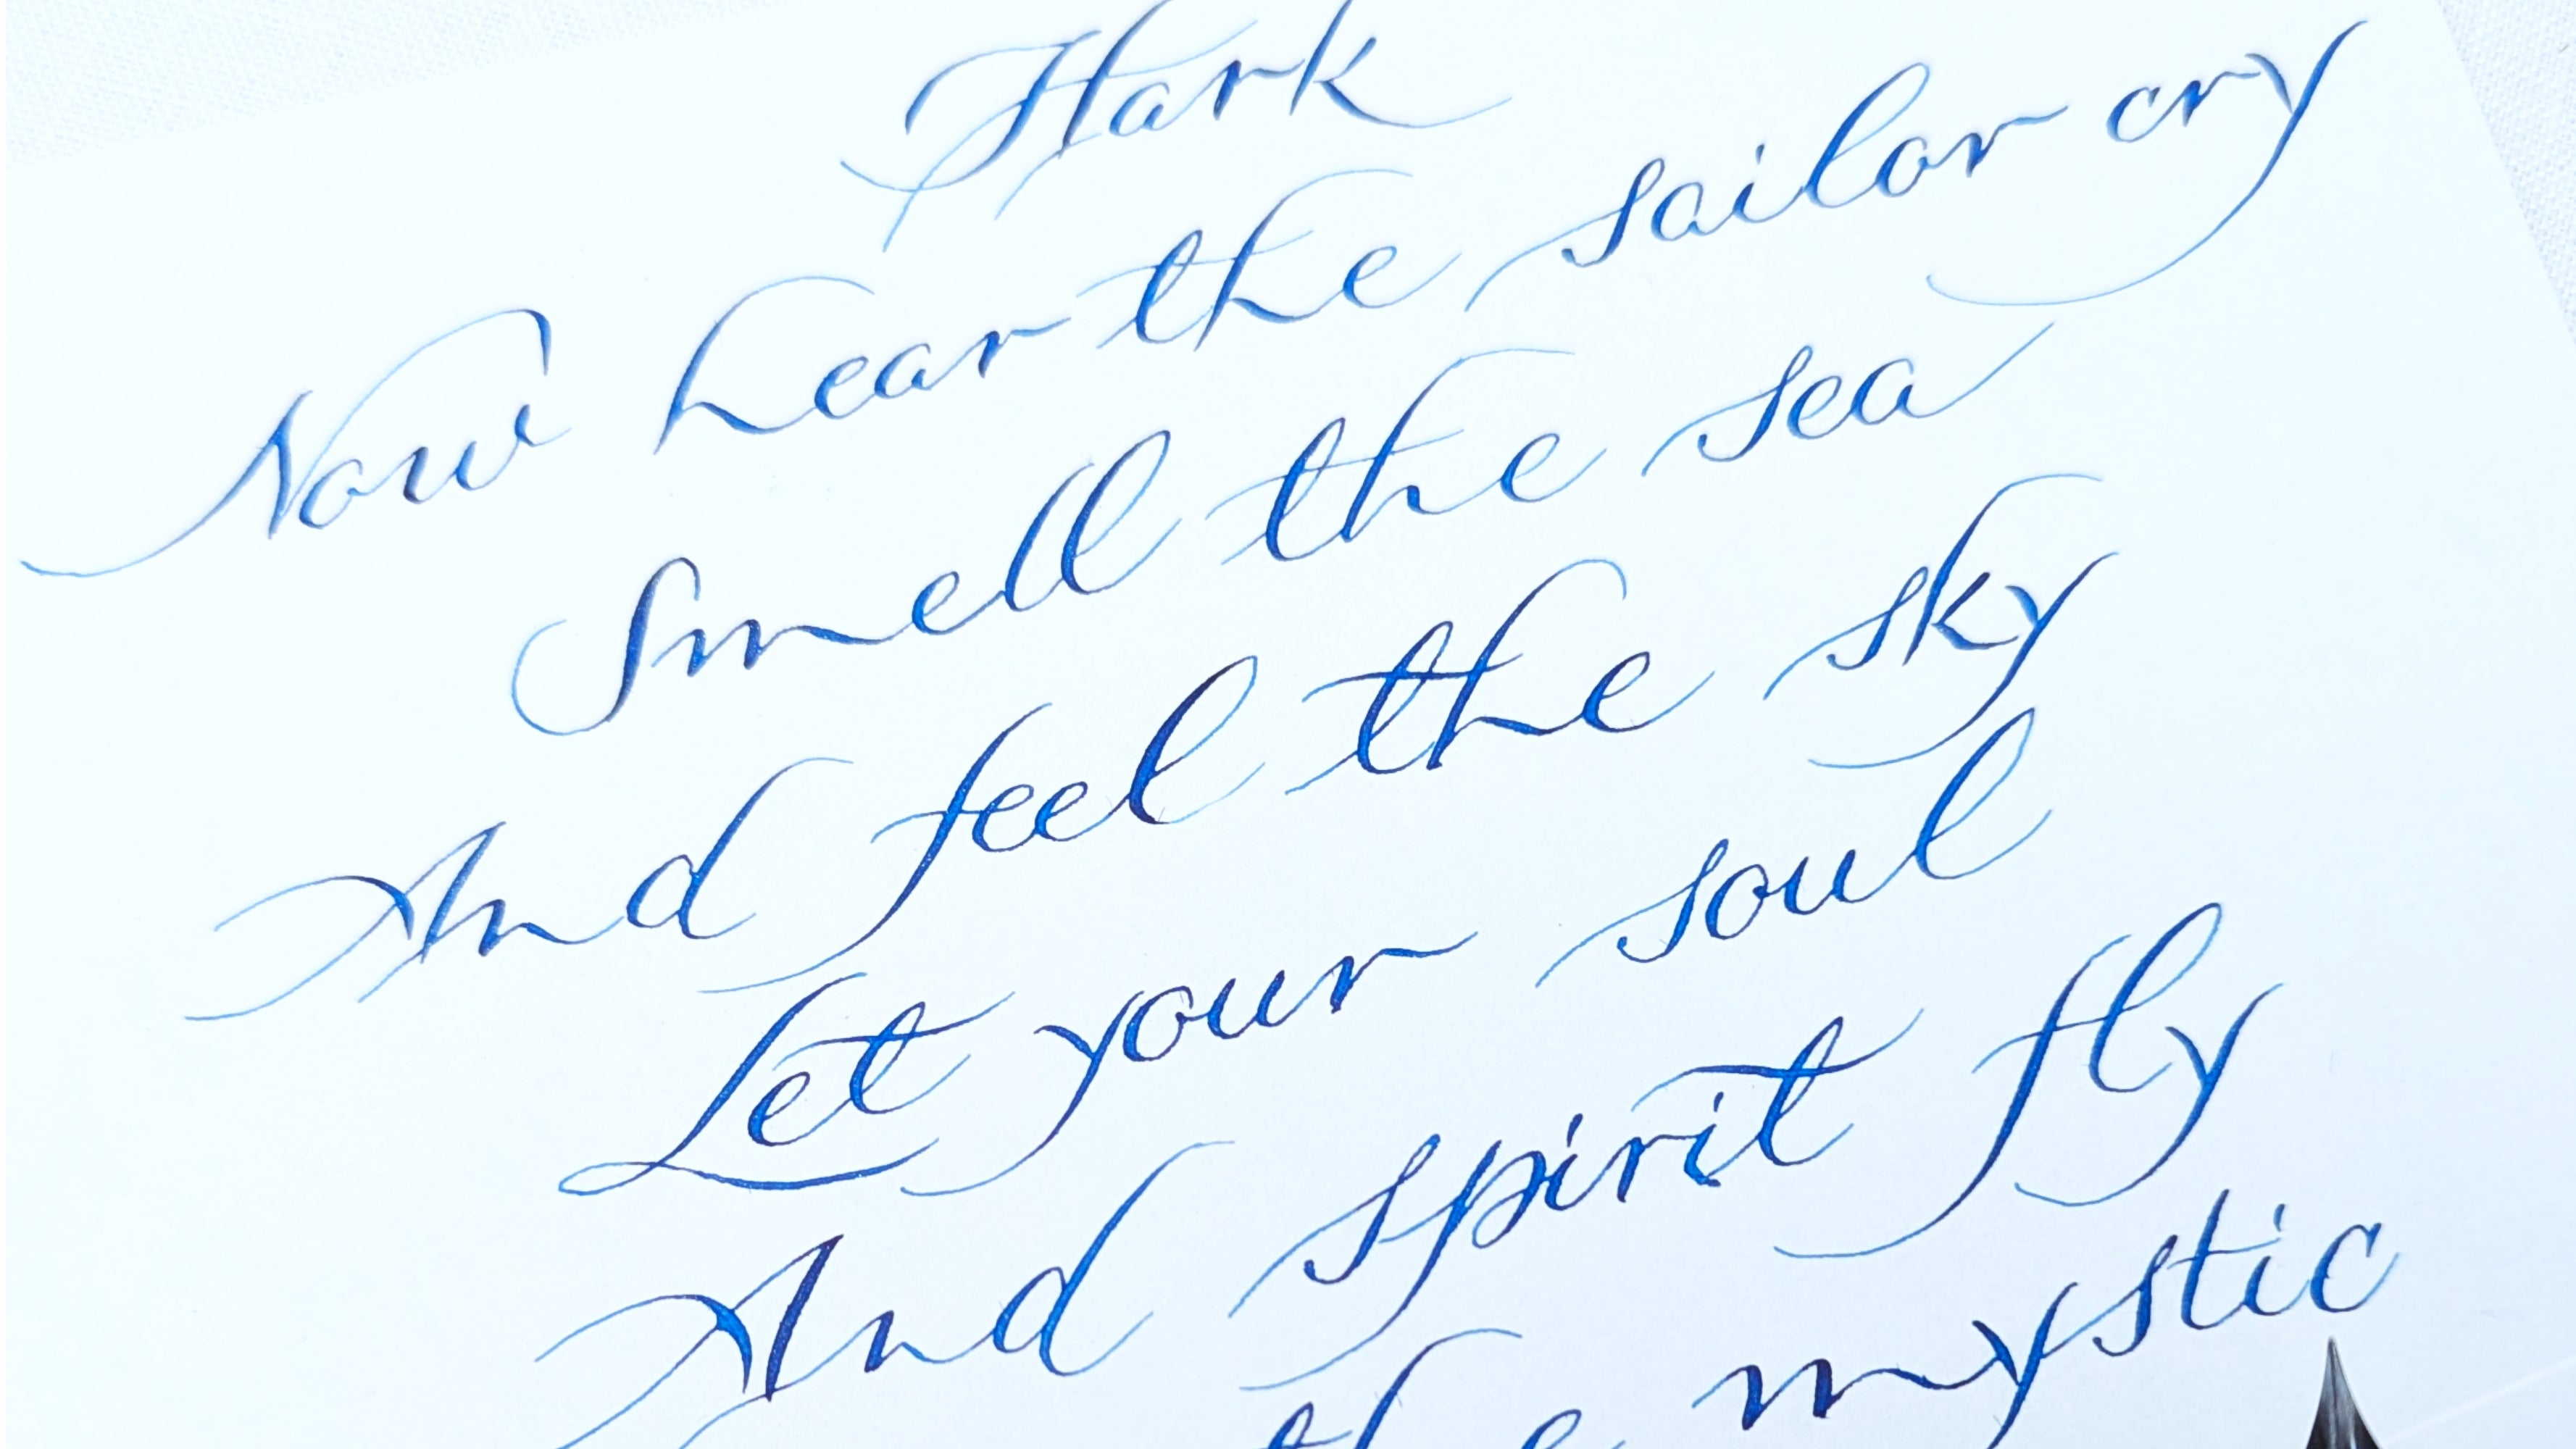 Hark
Now hear the sailor cry
Smell the sea
And feel the sky
Let your soul
And spirit fly
the mystic